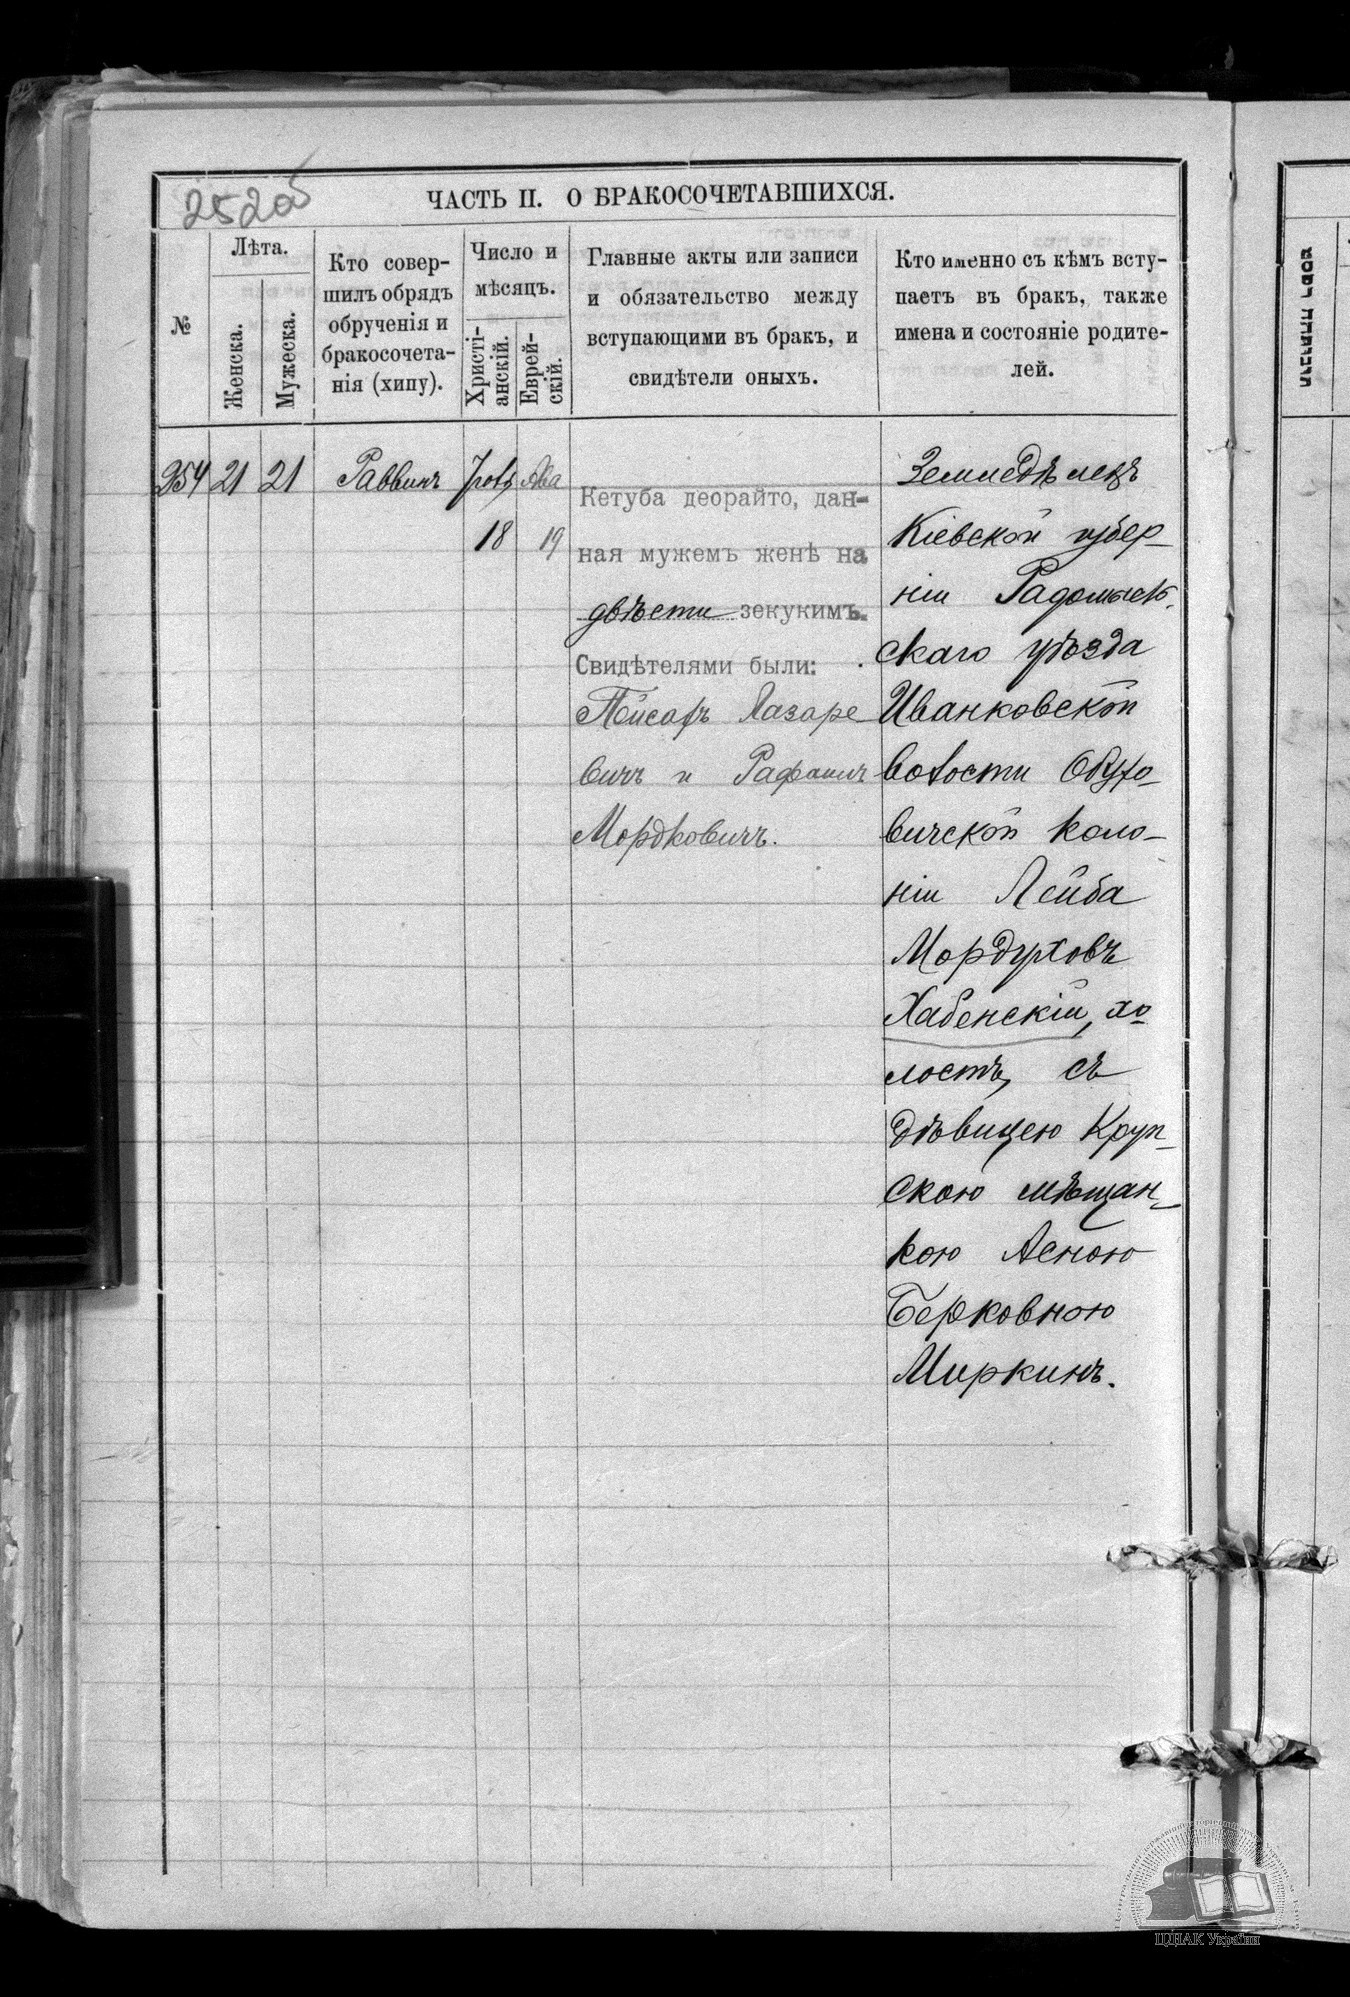 ЧАСТЬ II. О БРАКОСОЧЕТАВШИХСЯ.
№
Лѣта.
Женска.
Мужеска.
Кто совер-
шилъ обрядъ
обрученія и
бракосочета-
нія (хипу).
Число и
мѣсяцъ.
Христі-
анскій.
Еврей-
скій.
Главные акты или записи
и обязательство между
вступающими въ бракъ, и
свидѣтели оныхъ.
Кто именно съ кѣмъ всту-
паетъ въ бракъ, также
имена и состояніе родите-
лей.
254
21
21
Раввинъ
18
19
Кетуба деорайто, дан-
ная мужемъ женѣ на
двѣсти зекукимъ.
Свидѣтелями были:
Пейсахъ Лазаре
вичъ и Рафаилъ
Мордковичъ.
Земледѣлецъ
Кіевской губер-
ніи Радомысль-
скаго уѣзда
Иванковской
волости Обухо-
вичской коло-
ніи Лейба
Мордуховъ
Хабенскій, хо
лостъ, съ
дѣвицею Круп-
скою мѣщан-
кою Асною
Берковною
Миркинъ.
ЦДІАК України